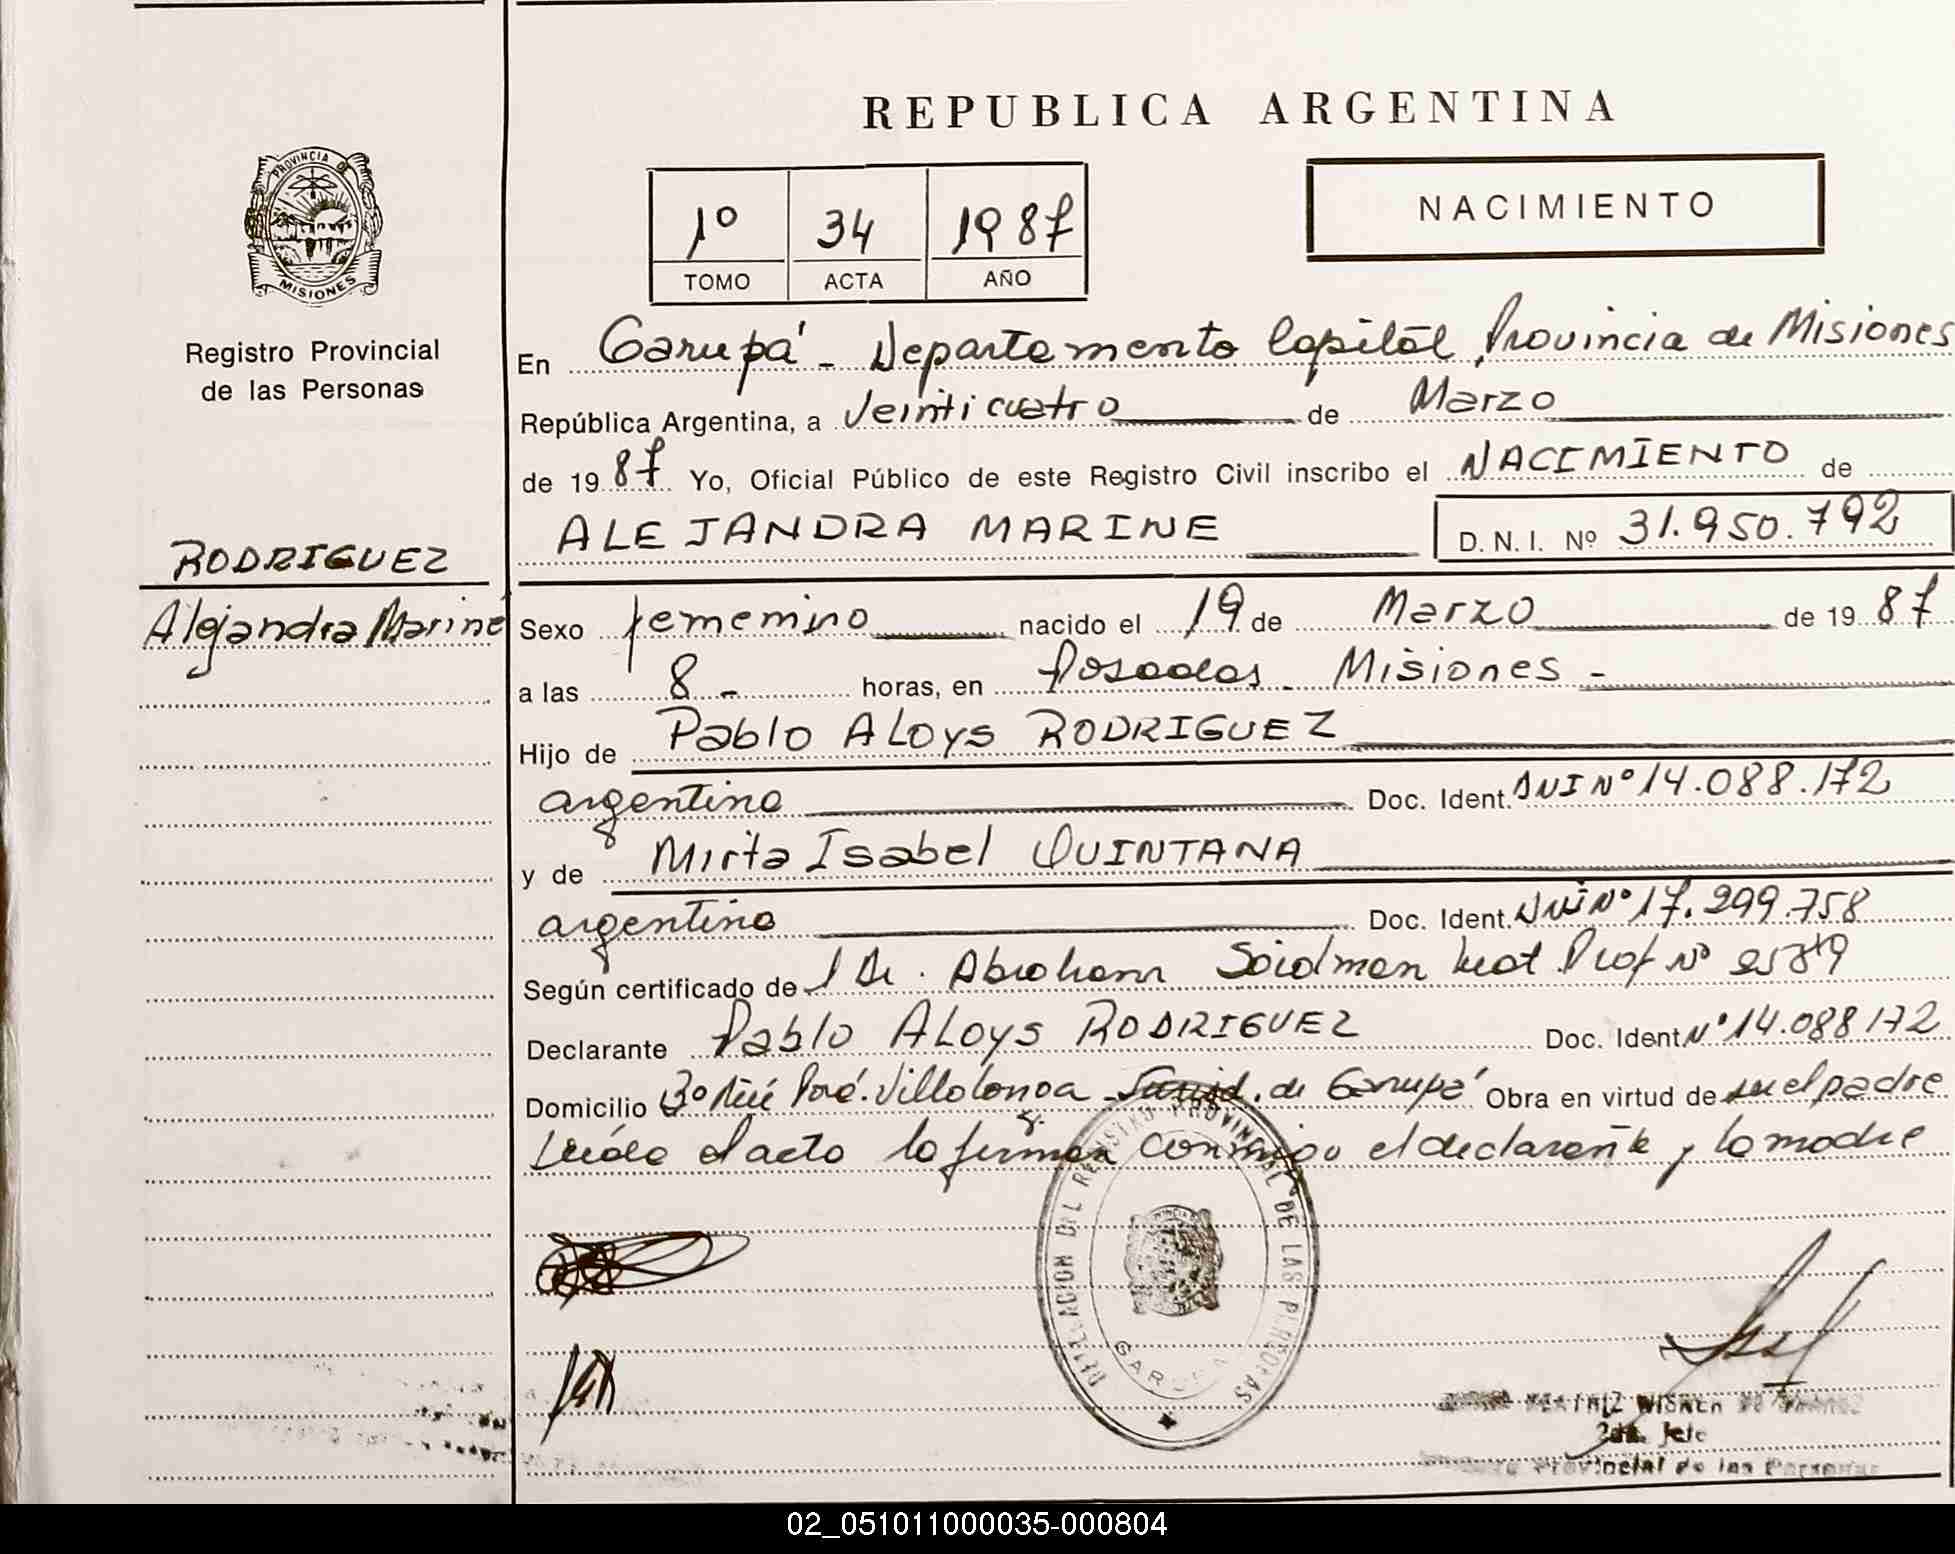 REPUBLICA ARGENTINA
PROVINCIA DE
MISIONES
Registro Provincial
de las Personas
1º 34 1987
TOMO ACTA AÑO
NACIMIENTO
En Garupá - Departamento Capital, Provincia de Misiones
República Argentina, a Veinticuatro de Marzo
de 1987 Yo, Oficial Público de este Registro Civil inscribo el NACIMIENTO de
RODRIGUEZ
ALEJANDRA MARINE D. N. I. Nº 31.950.792
Alejandra Marine
Sexo femenino nacido el 19 de Marzo de 1987
a las 8 - horas, en Posadas - Misiones -
Hijo de Pablo ALoys RODRIGUEZ
argentino Doc. Ident. DNI Nº 14.088.172
y de Mirta Isabel QUINTANA
argentina Doc. Ident. DNI Nº 17.299.758
Según certificado de Dr. Abraham Mat Prof Nº
Declarante Pablo ALoys RODRIGUEZ Doc. Ident Nº 14.088172
Domicilio Bº de Garupá Obra en virtud de ser el padre
Leída el acta la firman conmigo el declarante y la madre
DELEGACION DEL REGISTRO PROVINCIAL DE LAS PERSONAS
GARUPA
BEATRIZ
2da. Jefe
Provincial de las Personas
02_051011000035-000804